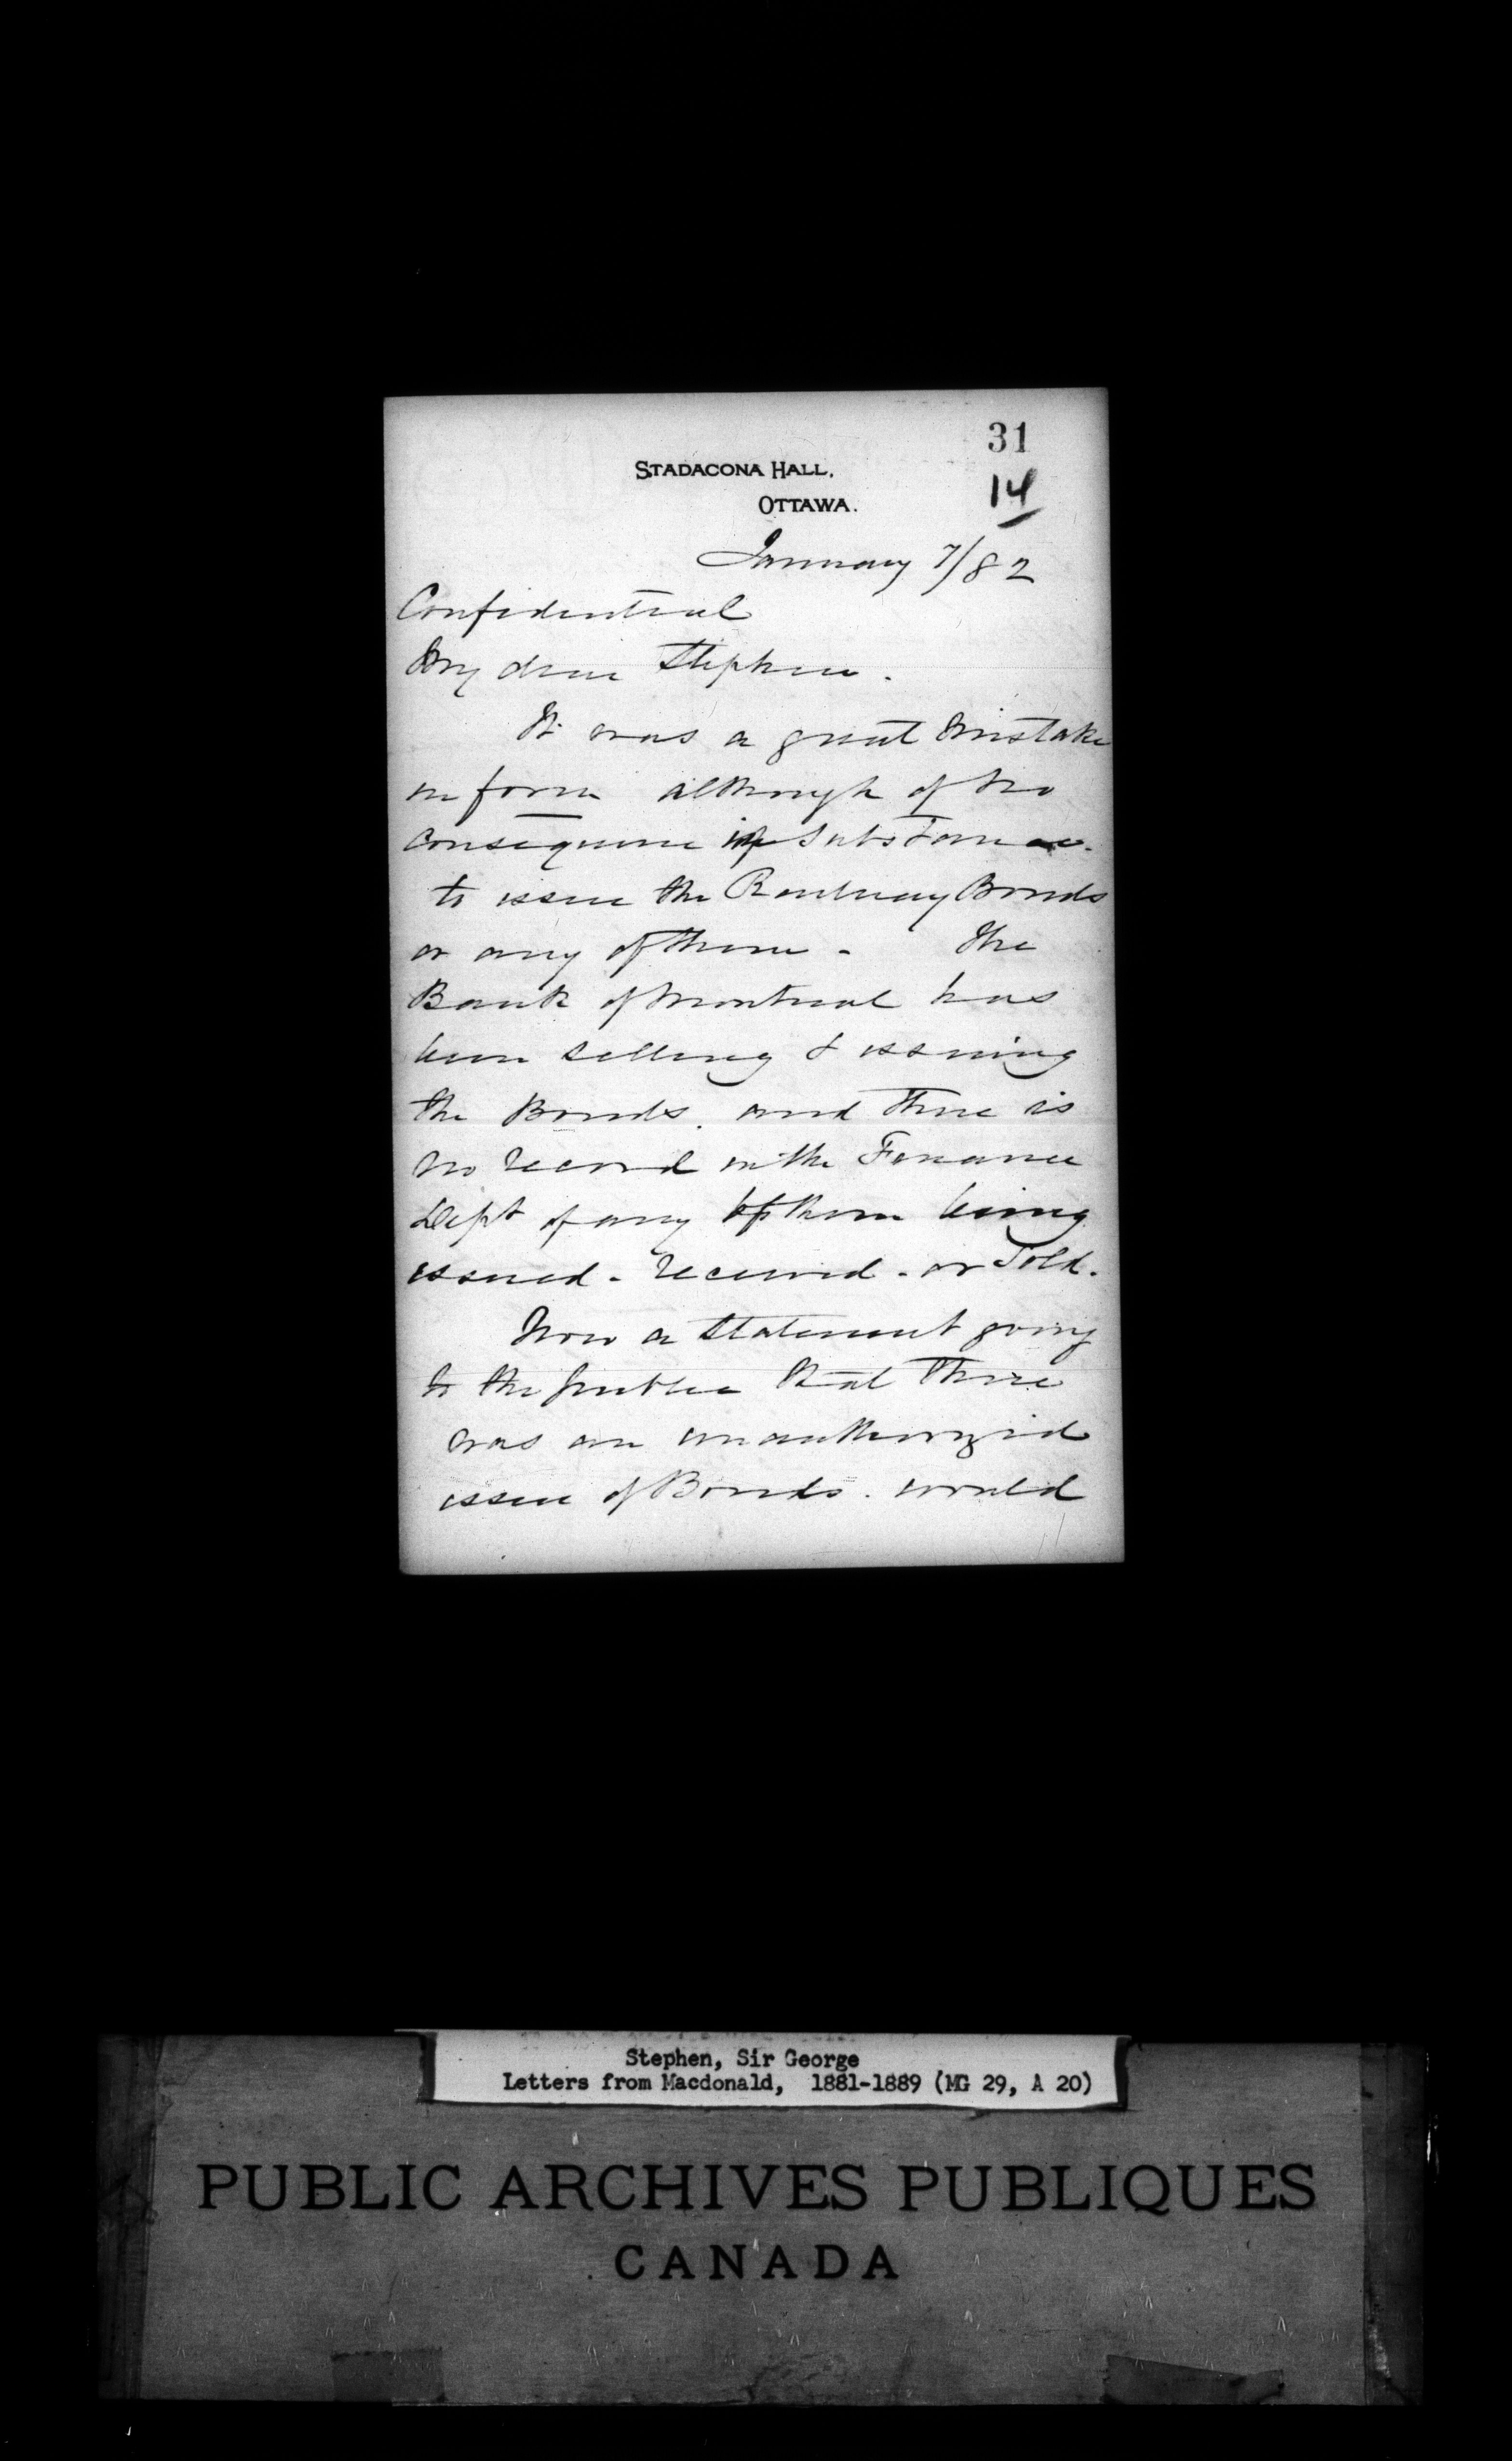 31
STADACONA HALL,
OTTAWA.
14
January 7/82
Confidential
My dear Stephen.
It was a great mistake
in form although of no
consequence in substance.
to issue the Railway Bonds
or any of them - The
Bank of Montreal has
been selling & issuing
the Bonds. and there is
no record in the Finance
Dept of any of them being
issued - received - or sold.
Now a statement going
to the public that there
was an unauthorized
issue of Bonds. would
Stephen, Sir George
Letters from Macdonald, 1881-1889 (MG 29, A 20)
PUBLIC ARCHIVES PUBLIQUES
CANADA